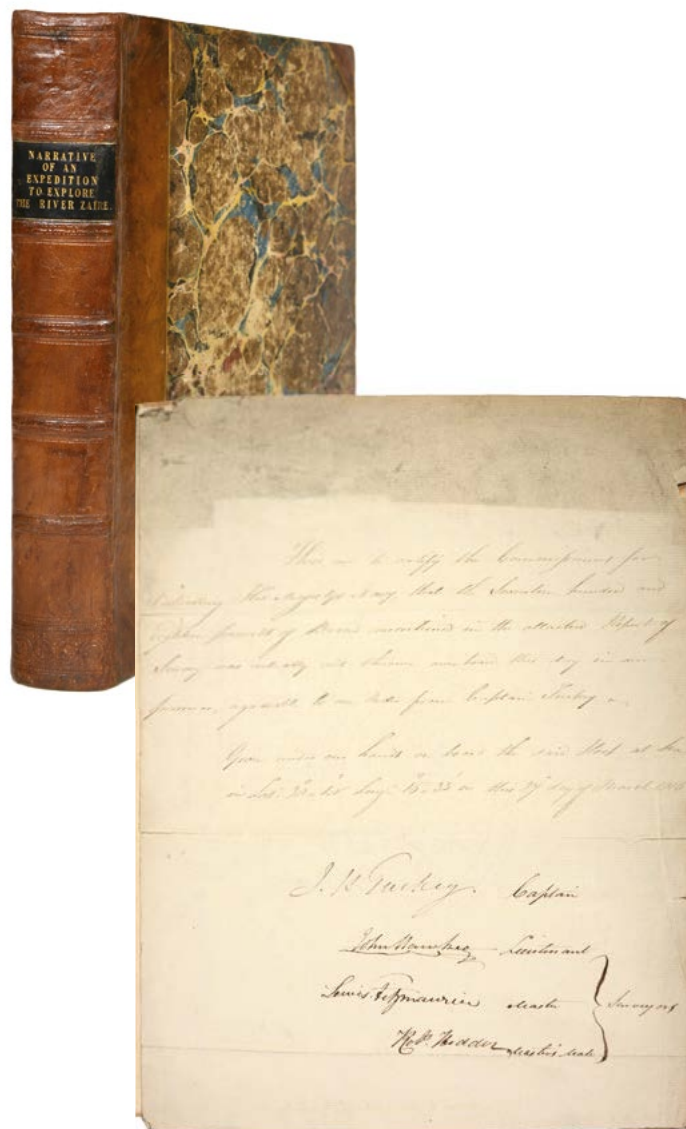 NARRATIVE
OF AN
EXPEDITION
TO EXPLORE
THE RIVER ZAIRE.
These are to certify the Commissioners for
His Majestys Navy that the Seventeen hundred and
pounds of Bread mentioned in the attached Report of
Survey was actually this day in our
presence, agreeable to an order from Captain Tuckey
Given under our hands on board the said Sloop at Sea
in Lat. Long. on this day of March
J. K. Tuckey. Captain
John Hawkey Lieutenant
Lewis Fitzmaurice Master
Surveyors
Hodder Master's Mate